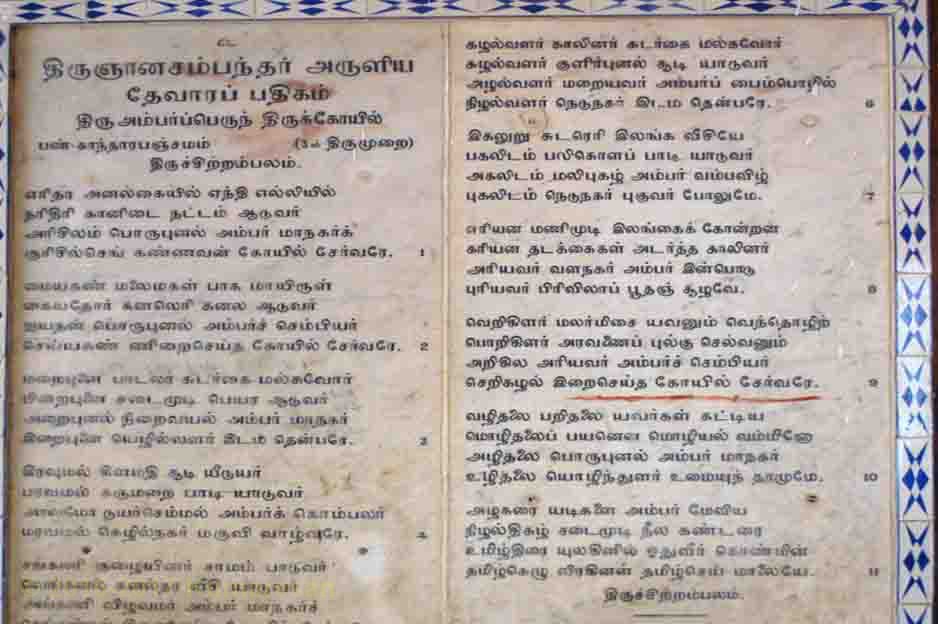 உ
திருஞானசம்பந்தர் அருளிய
தேவாரப் பதிகம்
திருஅம்பர்ப்பெருந் திருக்கோயில்
பண்-காந்தாரபஞ்சமம் (3ம் திருமுறை)
திருச்சிற்றம்பலம்.
எரிதர அனல்கையில் ஏந்தி எல்லியில்
நரிதிரி கானிடை நட்டம் ஆடுவர்
அரிசிலம் பொருபுனல் அம்பர் மாநகர்க்
குரிசில்செங் கண்ணவன் கோயில் சேர்வரே. 1
மையகண் மலைமகள் பாக மாயிருள்
கையதோர் கனலெரி கனல ஆடுவர்
ஐயநன் பொருபுனல் அம்பர்ச் செம்பியர்
செய்யகண் ணிறைசெய்த கோயில் சேர்வரே. 2
மறைபுனை பாடலர் சுடர்கை மல்கவோர்
பிறைபுனை சடைமுடி பெயர ஆடுவர்
அறைபுனல் நிறைவயல் அம்பர் மாநகர்
இறைபுனை யெழில்வளர் இடம தென்பரே. 3
இரவுமல் கிளமதி சூடி யீடுயர்
பரவமல் கருமறை பாடி யாடுவர்
அரவமோ டுயர்செம்மல் அம்பர்க் கொம்பலர்
மரவமல் கெழில்நகர் மருவி வாழ்வரே. 4
சங்கணி குழையினர் சாமம் பாடுவர்
வெங்கனல் கனல்தர வீசி யாடுவர்
அங்கணி விழவமர் அம்பர் மாநகர்ச்
கழல்வளர் காலினர் சுடர்கை மல்கவோர்
சுழல்வளர் குளிர்புனல் சூடி யாடுவர்
அழல்வளர் மறையவர் அம்பர்ப் பைம்பொழில்
நிழல்வளர் நெடுநகர் இடம தென்பரே. 6
இகலுறு சுடரெரி இலங்க வீசியே
பகலிடம் பலிகொளப் பாடி யாடுவர்
அகலிடம் மலிபுகழ் அம்பர் வம்பவிழ்
புகலிடம் நெடுநகர் புகுவர் போலுமே. 7
எரியன மணிமுடி இலங்கைக் கோன்றன
கரியன தடக்கைகள் அடர்த்த காலினர்
அரியவர் வளநகர் அம்பர் இன்பொடு
புரியவர் பிரிவிலாப் பூதஞ் சூழவே. 8
வெறிகிளர் மலர்மிசை யவனும் வெந்தொழிற்
பொறிகிளர் அரவணைப் புல்கு செல்வனும்
அறிகில அரியவர் அம்பர்ச் செம்பியர்
செறிகழல் இறைசெய்த கோயில் சேர்வரே. 9
வழிதலை பறிதலை யவர்கள் கட்டிய
மொழிதலைப் பயனென மொழியல் வம்மினோ
அழிதலை பொருபுனல் அம்பர் மாநகர்
உழிதலை யொழிந்துளர் உமையுந் தாமுமே. 10
அழகரை யடிகளை அம்பர் மேவிய
நிழல்திகழ் சடைமுடி நீல கண்டரை
உமிழ்திரை யுலகினில் ஓதுவீர் கொண்மின்
தமிழ்கெழு விரகினன் தமிழ்செய் மாலையே. 11
திருச்சிற்றம்பலம்.